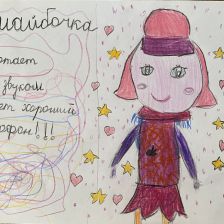 майбочка
отает
звуком
ет хороший
фон!!!